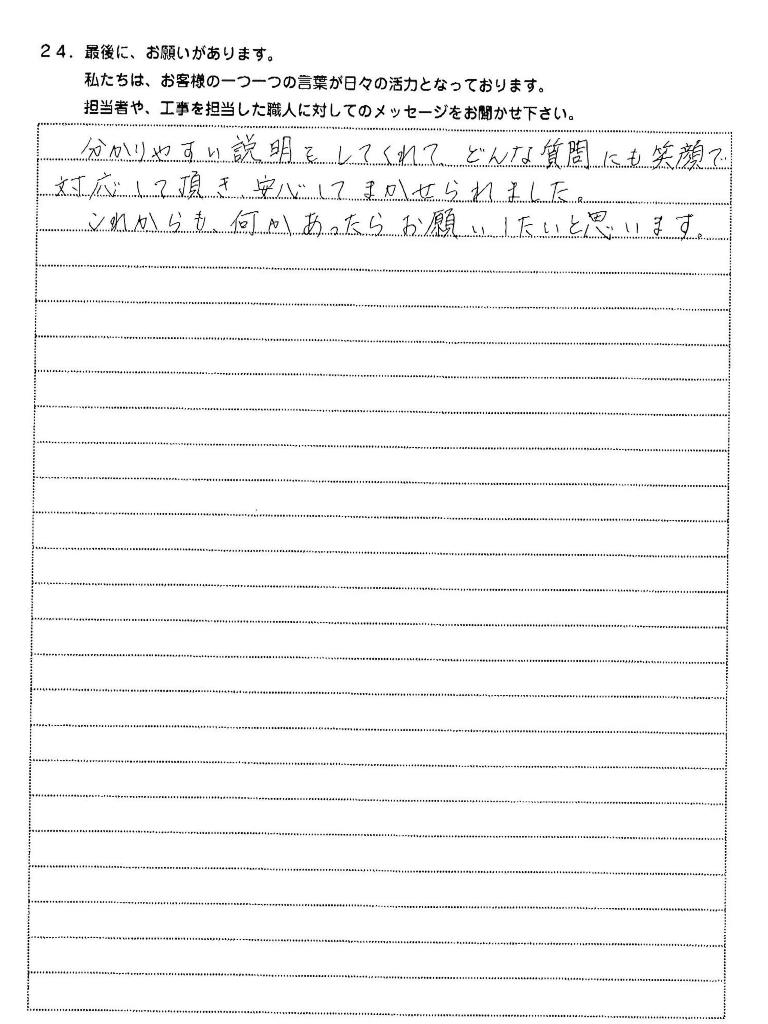 24．最後に、お願いがあります。
私たちは、お客様の一つ一つの言葉が日々の活力となっております。
担当者や、工事を担当した職人に対してのメッセージをお聞かせ下さい。
分かりやすい説明をしてくれて、どんな質問にも笑顔で
対応して頂き、安心してまかせられました。
これからも、何かあったらお願いしたいと思います。